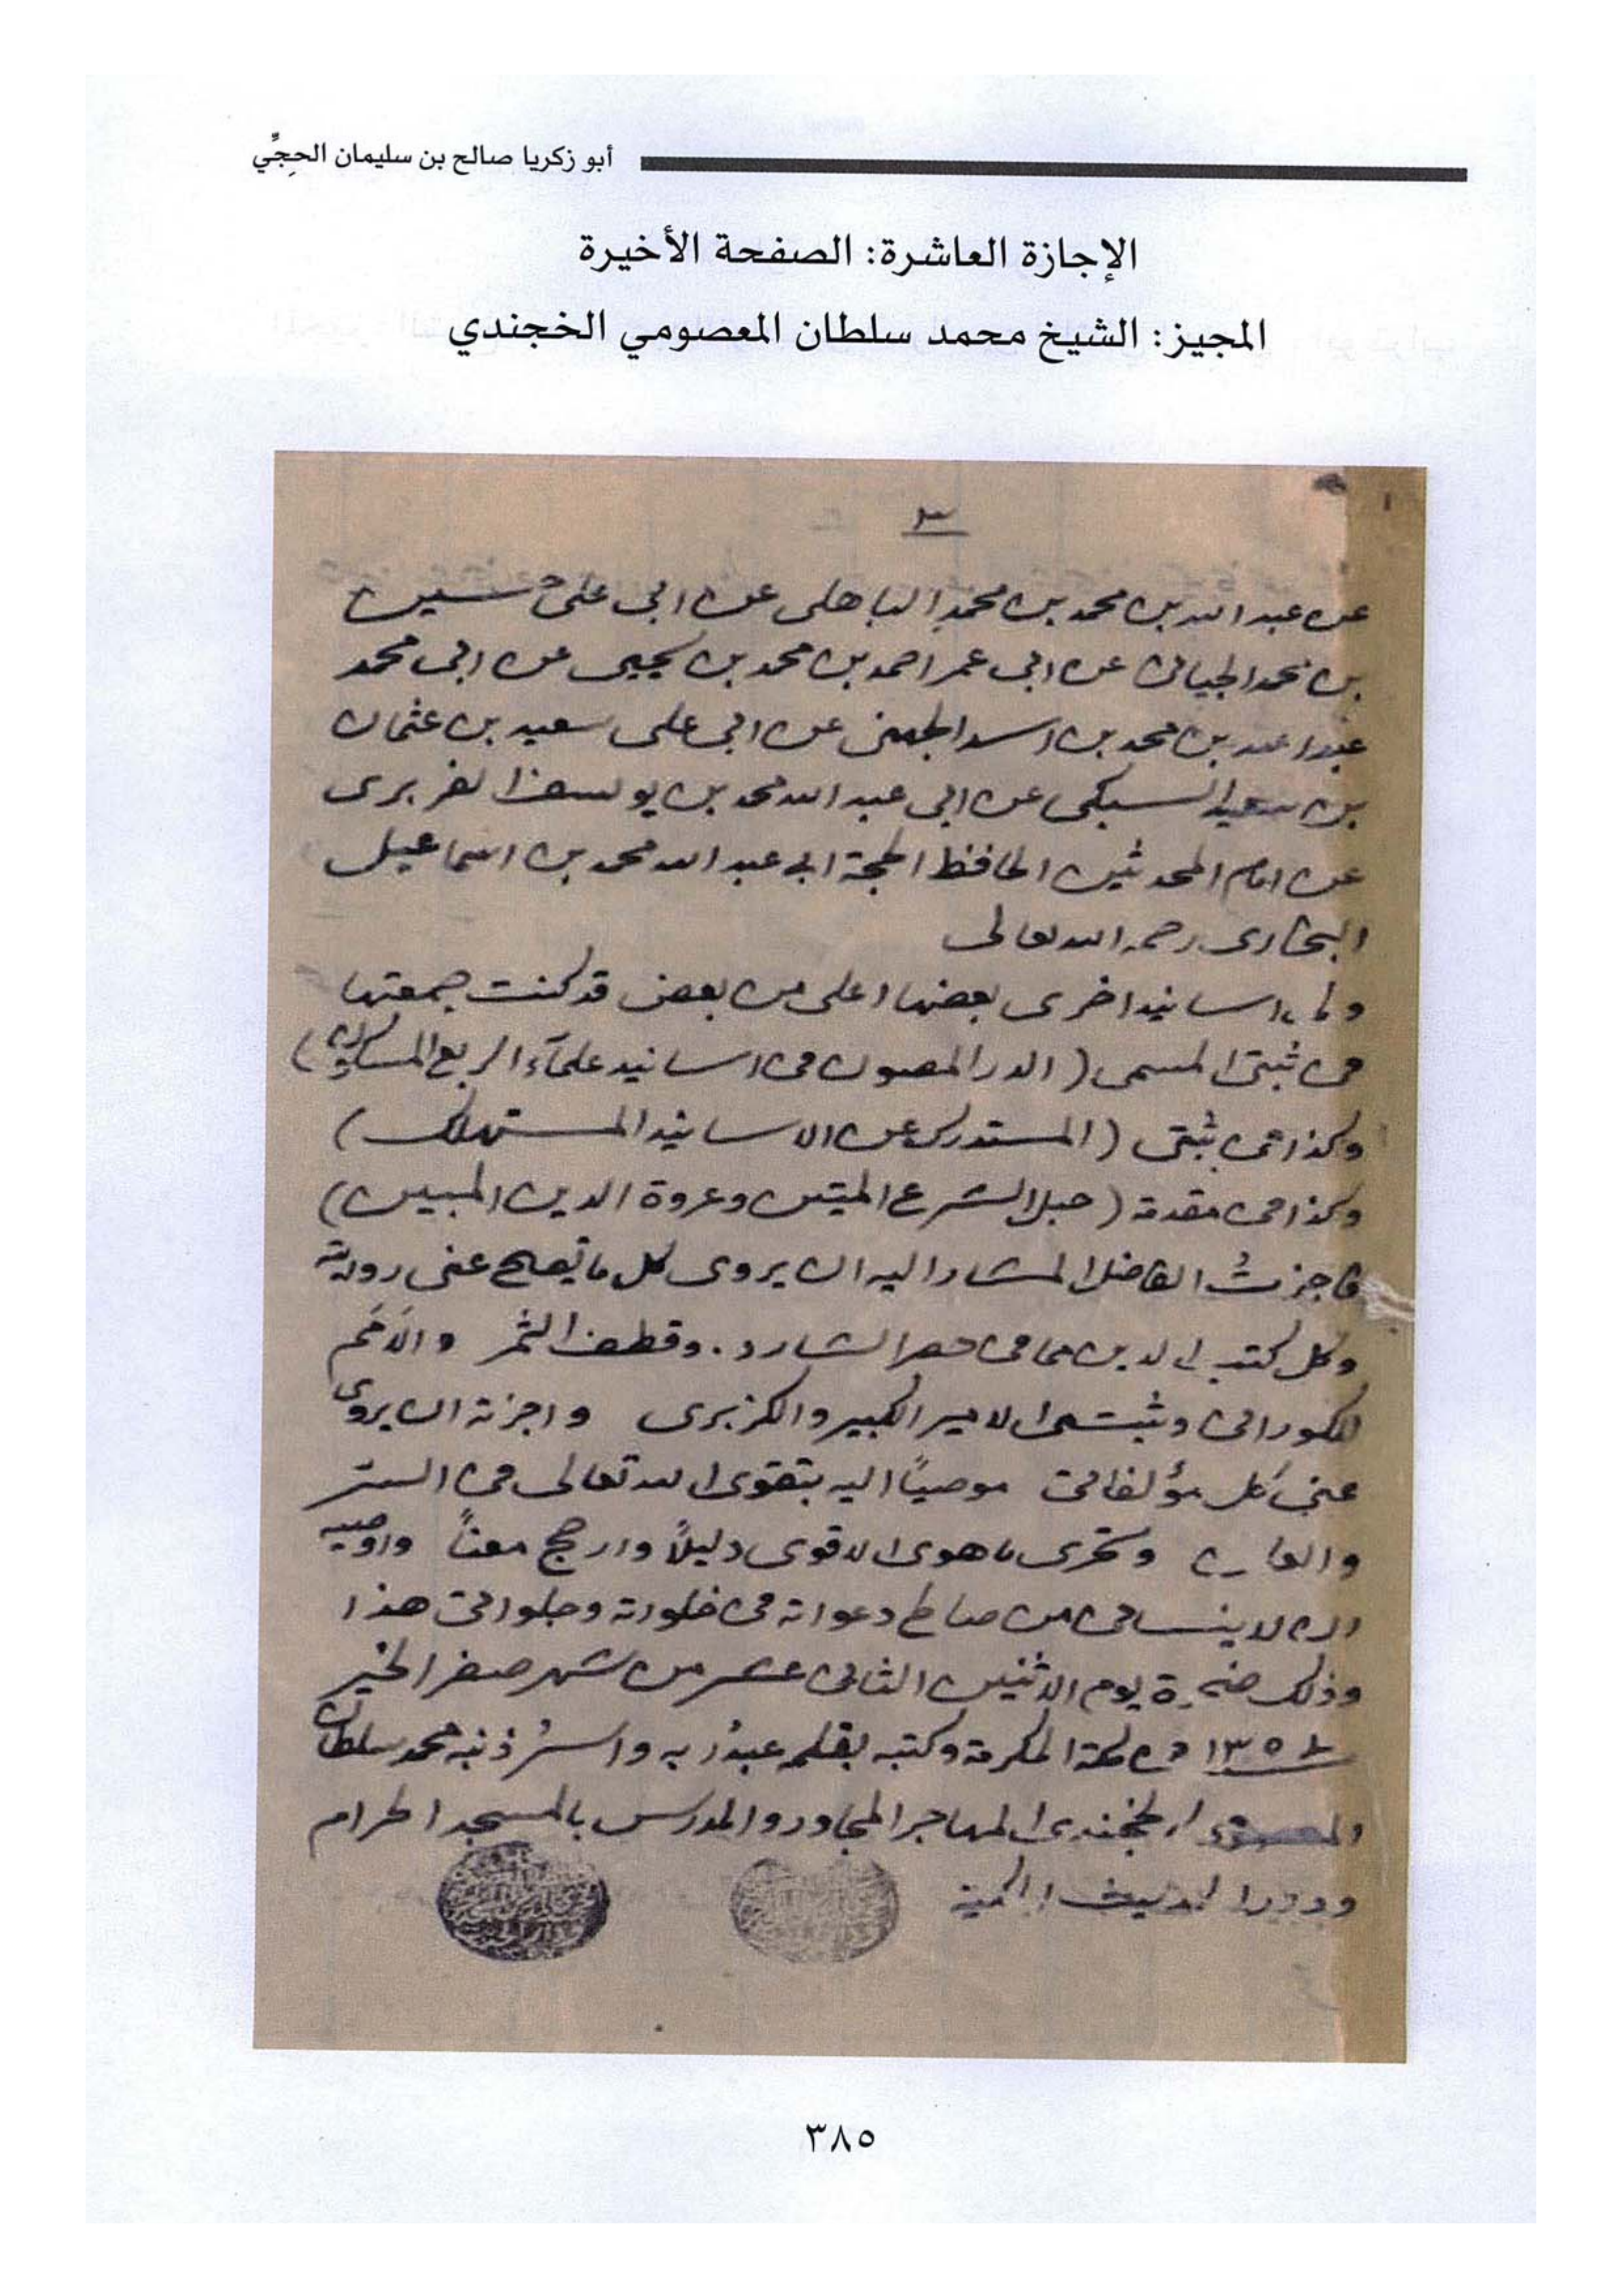 أبو زكريا صالح بن سليمان الحِجِّي
الإجازة العاشرة: الصفحة الأخيرة
المجيز: الشيخ محمد سلطان المعصومي الخجندي
٣
عن عبد الله بن محمد بن محمد الباهلى عن ابى على حسين
بن محمد الجيانى عن ابى عمر احمد بن محمد بن يحيى عن ابى محمد
عبد الله بن محمد بن اسد الجهنى عن ابى على سعيد بن عثمان
بن سعيد السكى عن ابى عبد الله محمد بن يوسف الفربرى
عن امام المحدثين الحافظ الحجة ابى عبد الله محمد بن اسماعيل
البخارى رحمه الله تعالى
ولى اسانيد اخرى بعضها اعلى من بعض قد كنت جمعتها
فى ثبتى المسمى (الدر المصون فى اسانيد علماء الربع المسكون)
وكذا فى ثبتى (المستدرك عن الاسانيد المستهلك)
وكذا فى مقدمة (حبل الشرع المتين وعروة الدين المبين)
فاجزتُ الفاضل المشار اليه ان يروى كل ما تصح عنى روايته
وكل كتب لى لدين مما فى حصر الشارد. وقطف الثمر والأمَم
للكورانى وثبتى الامير الكبير والكزبرى واجزته ان يروى
عنى كل مؤلفاتى موصيًا اليه بتقوى الله تعالى فى السر
والعلن وتحرى ما هو الاقوى دليلاً وارجح معناً واوصيه
ان لا ينسانى من صالح دعواته فى خلواته وجلواتى هذا
وذلك ضحوة يوم الاثنين الثانى عشر من شهر صفر الخير
فى مكة المكرمة وكتبه بقلمه عبدُ ربه واسيرُ ذنبه محمد سلطان
المعصومى الخجندى المهاجر المجاور والمدرس بالمسجد الحرام
ودار الحديث المكية
٣٨٥